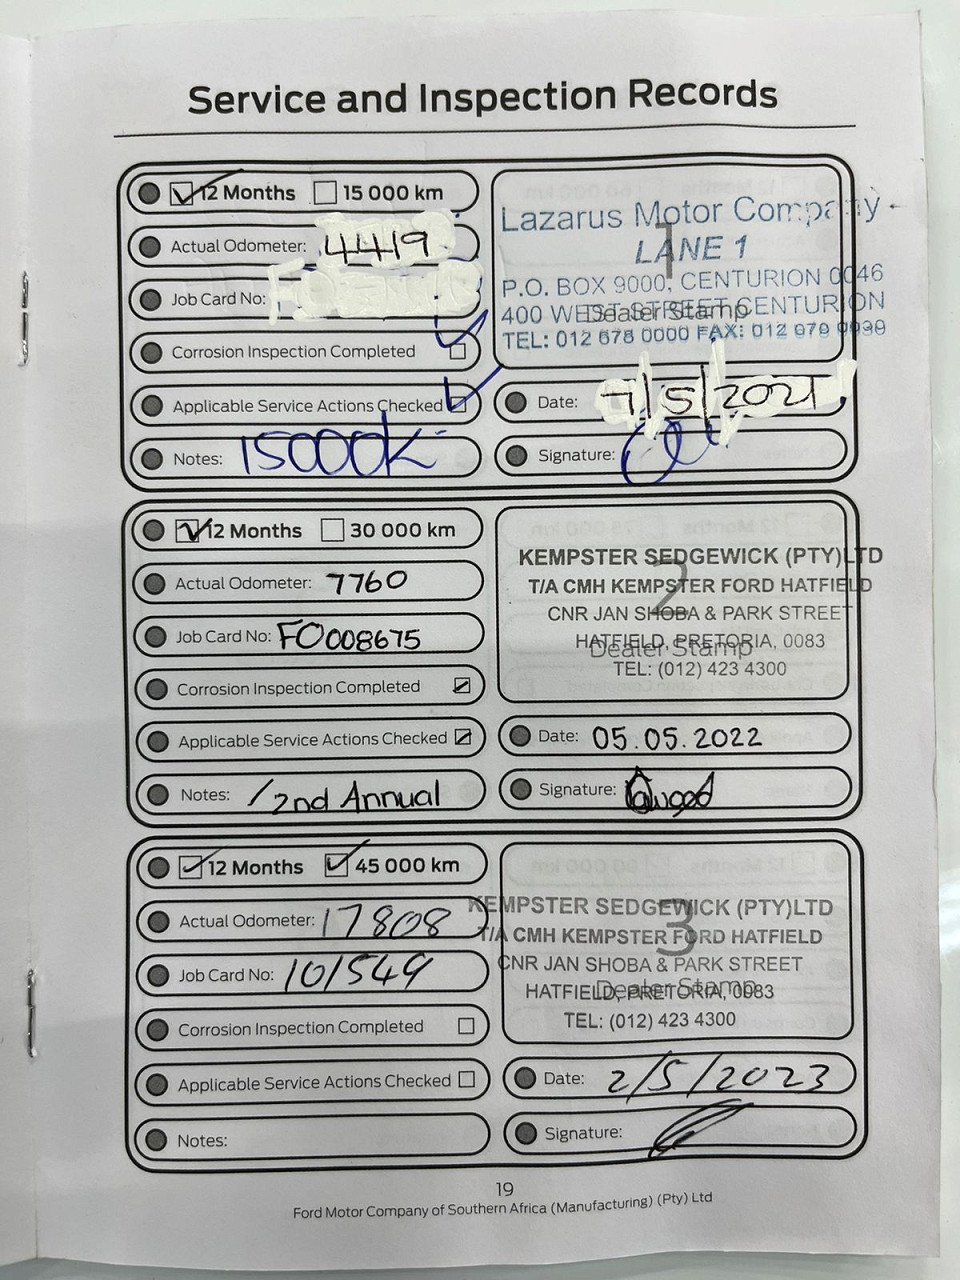 Service and Inspection Records
12 Months 15 000 km
Actual Odometer: 4419
Job Card No:
Corrosion Inspection Completed
Applicable Service Actions Checked
Notes: 15000k
1
Dealer Stamp
Lazarus Motor Company
LANE 1
P.O. BOX 9000, CENTURION 0046
400 WEST STREET CENTURION
TEL: 012 678 0000 FAX: 012 679 9939
Date: 7/5/2021
Signature:
12 Months 30 000 km
Actual Odometer: 7760
Job Card No: FO008675
Corrosion Inspection Completed
Applicable Service Actions Checked
Notes: 2nd Annual
2
Dealer Stamp
KEMPSTER SEDGEWICK (PTY)LTD
T/A CMH KEMPSTER FORD HATFIELD
CNR JAN SHOBA & PARK STREET
HATFIELD, PRETORIA, 0083
TEL: (012) 423 4300
Date: 05.05.2022
Signature:
12 Months 45 000 km
Actual Odometer: 17808
Job Card No: 101549
Corrosion Inspection Completed
Applicable Service Actions Checked
Notes:
3
Dealer Stamp
KEMPSTER SEDGEWICK (PTY)LTD
T/A CMH KEMPSTER FORD HATFIELD
CNR JAN SHOBA & PARK STREET
HATFIELD, PRETORIA, 0083
TEL: (012) 423 4300
Date: 2/5/2023
Signature:
19
Ford Motor Company of Southern Africa (Manufacturing) (Pty) Ltd